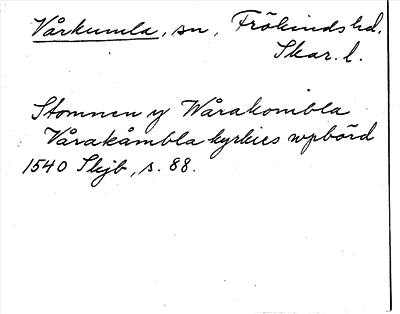 Vårkumla, sn, Frökinds hd,
Skar. l.
Stomnen y Wårakombla
Vårakåmbla kyrkies wpbörd
1540 Skjb, s. 88.